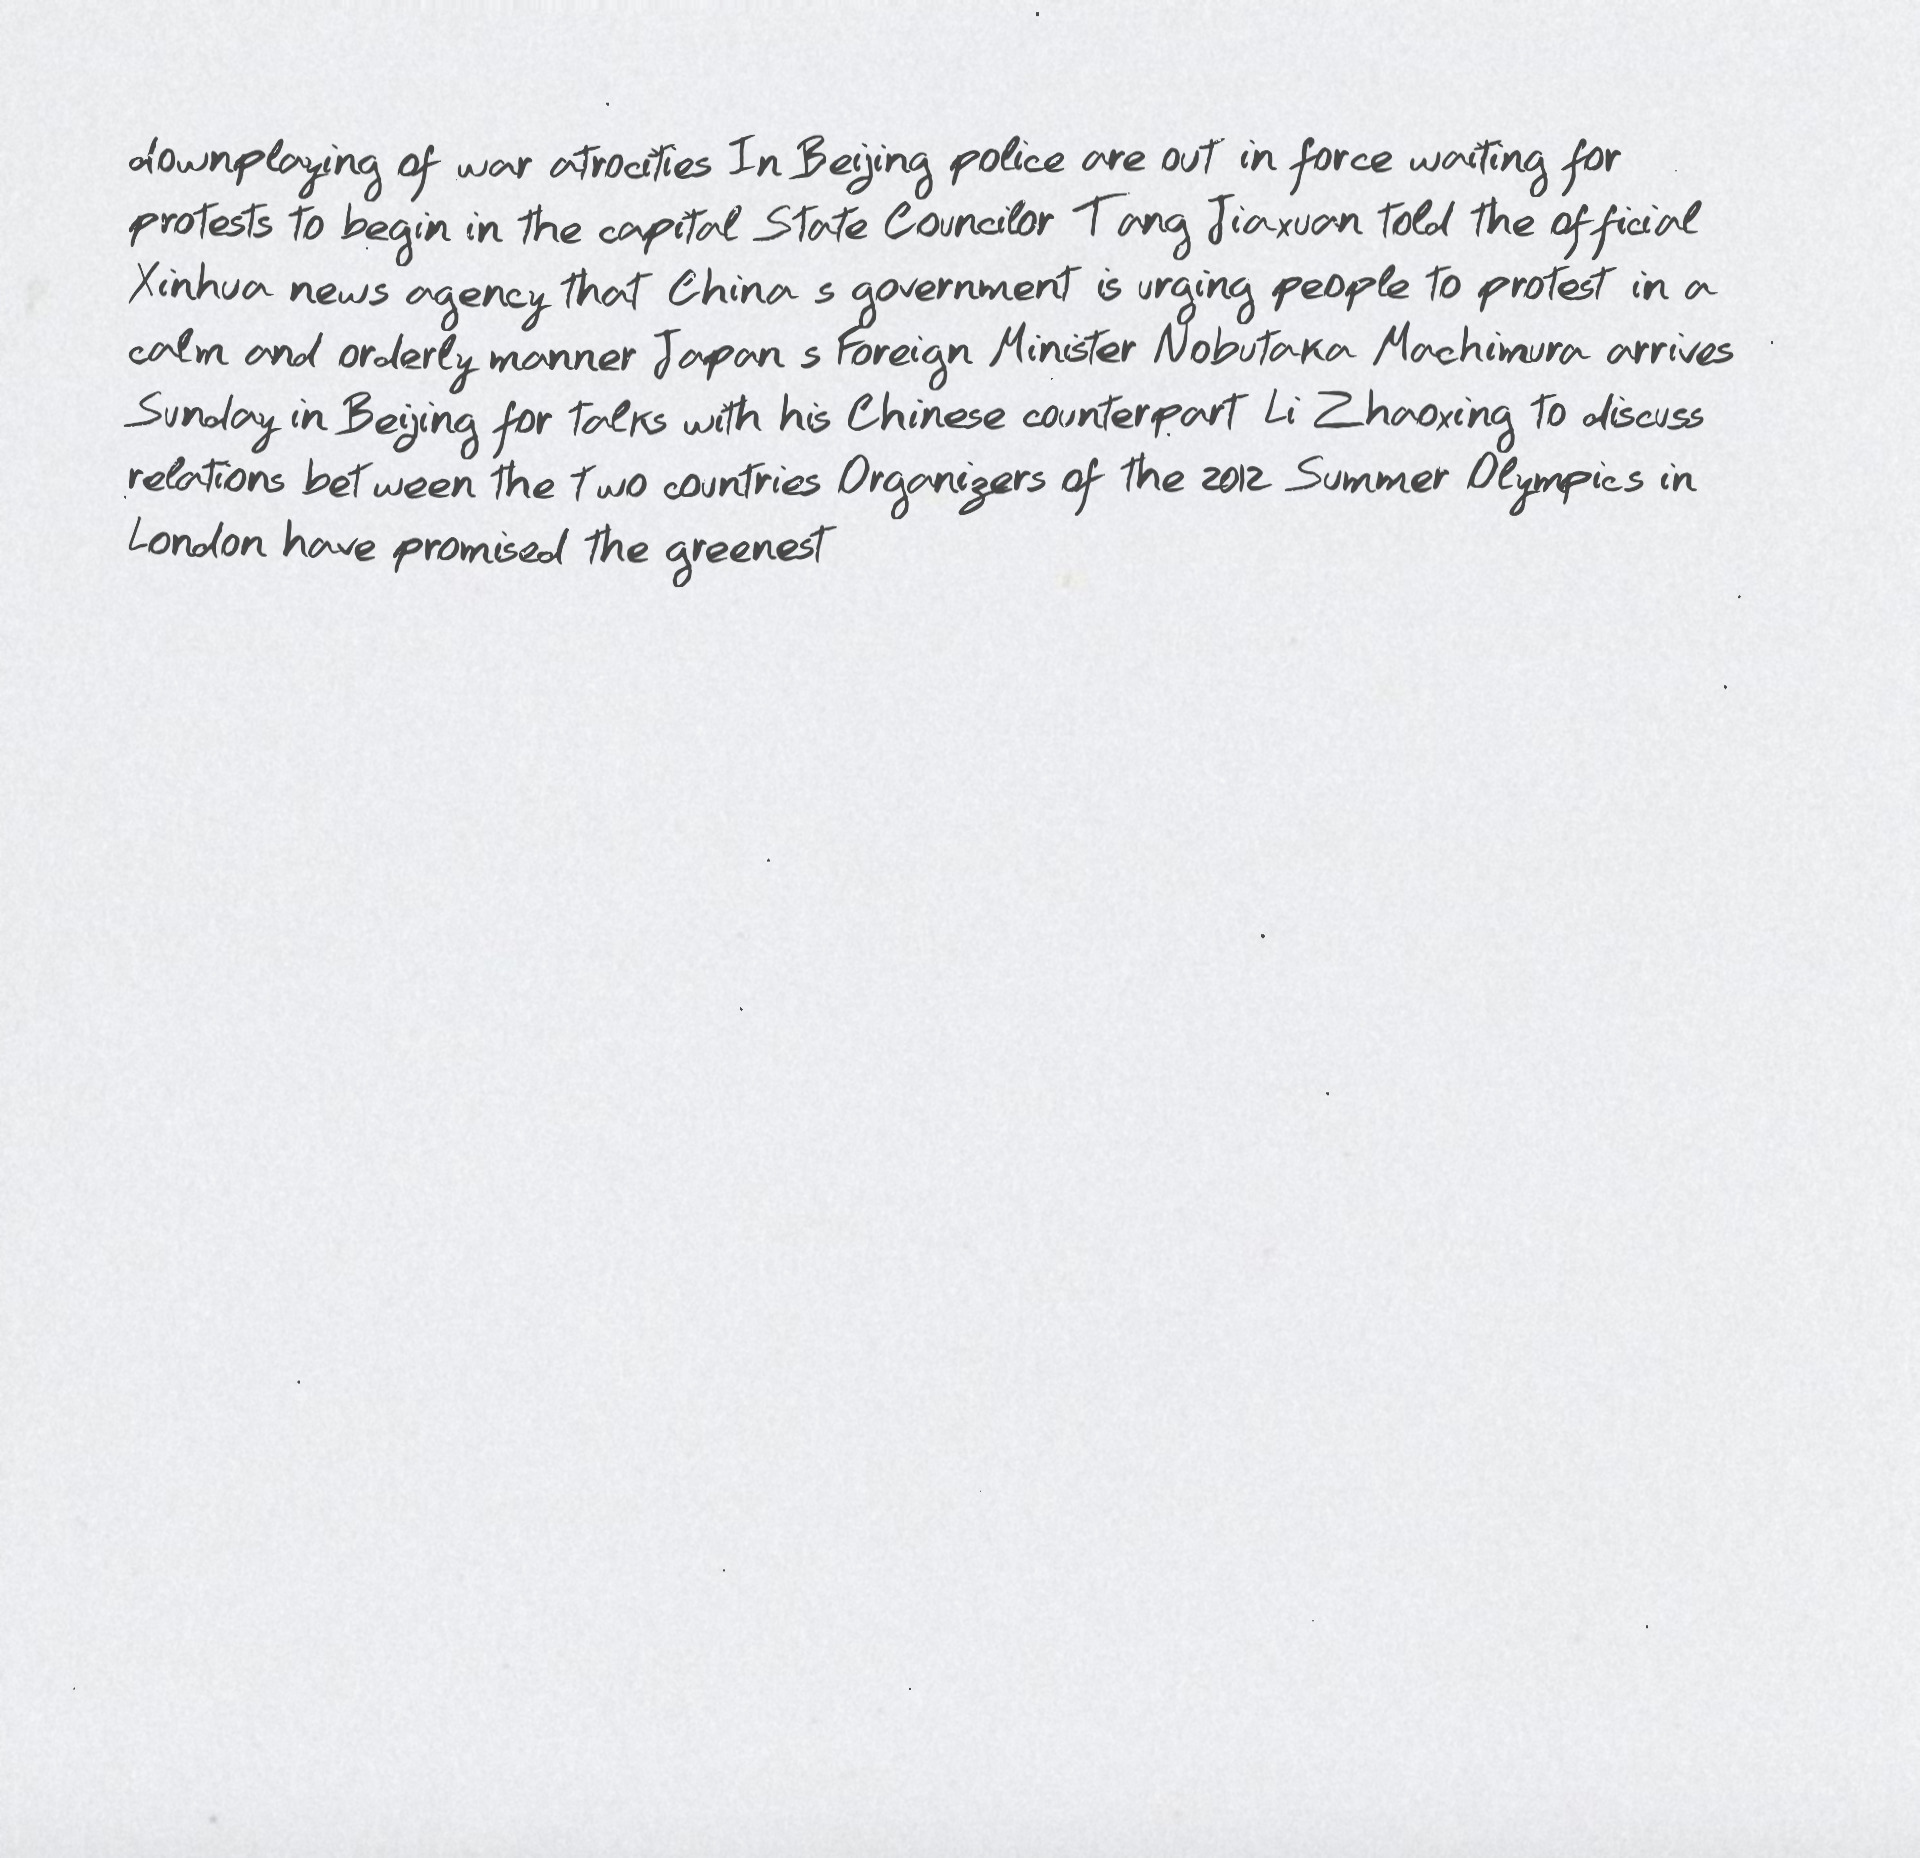 downplaying of war atrocities In Beijing police are out in force waiting for
protests to begin in the capital State Councilor Tang Jiaxuan told the official
Xinhua news agency that China s government is urging people to protest in a
calm and orderly manner Japan s Foreign Minister Nobutaka Machimura arrives
Sunday in Beijing for talks with his Chinese counterpart Li Zhaoxing to discuss
relations between the two countries Organizers of the 2012 Summer Olympics in
London have promised the greenest